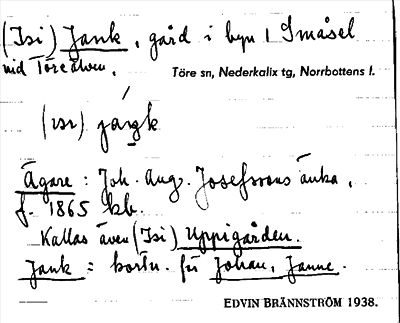 (Isi) Jank, gård i byn 1 Småsel
vid Töreälven.
Töre sn, Nederkalix tg, Norrbottens l.
Ägare: Joh. Aug. Josefssons änka,
f. 1865 kb.
Kallas även (Isi) Uppigården.
Jank = kortn. för Johan, Janne.
EDVIN BRÄNNSTRÖM 1938.